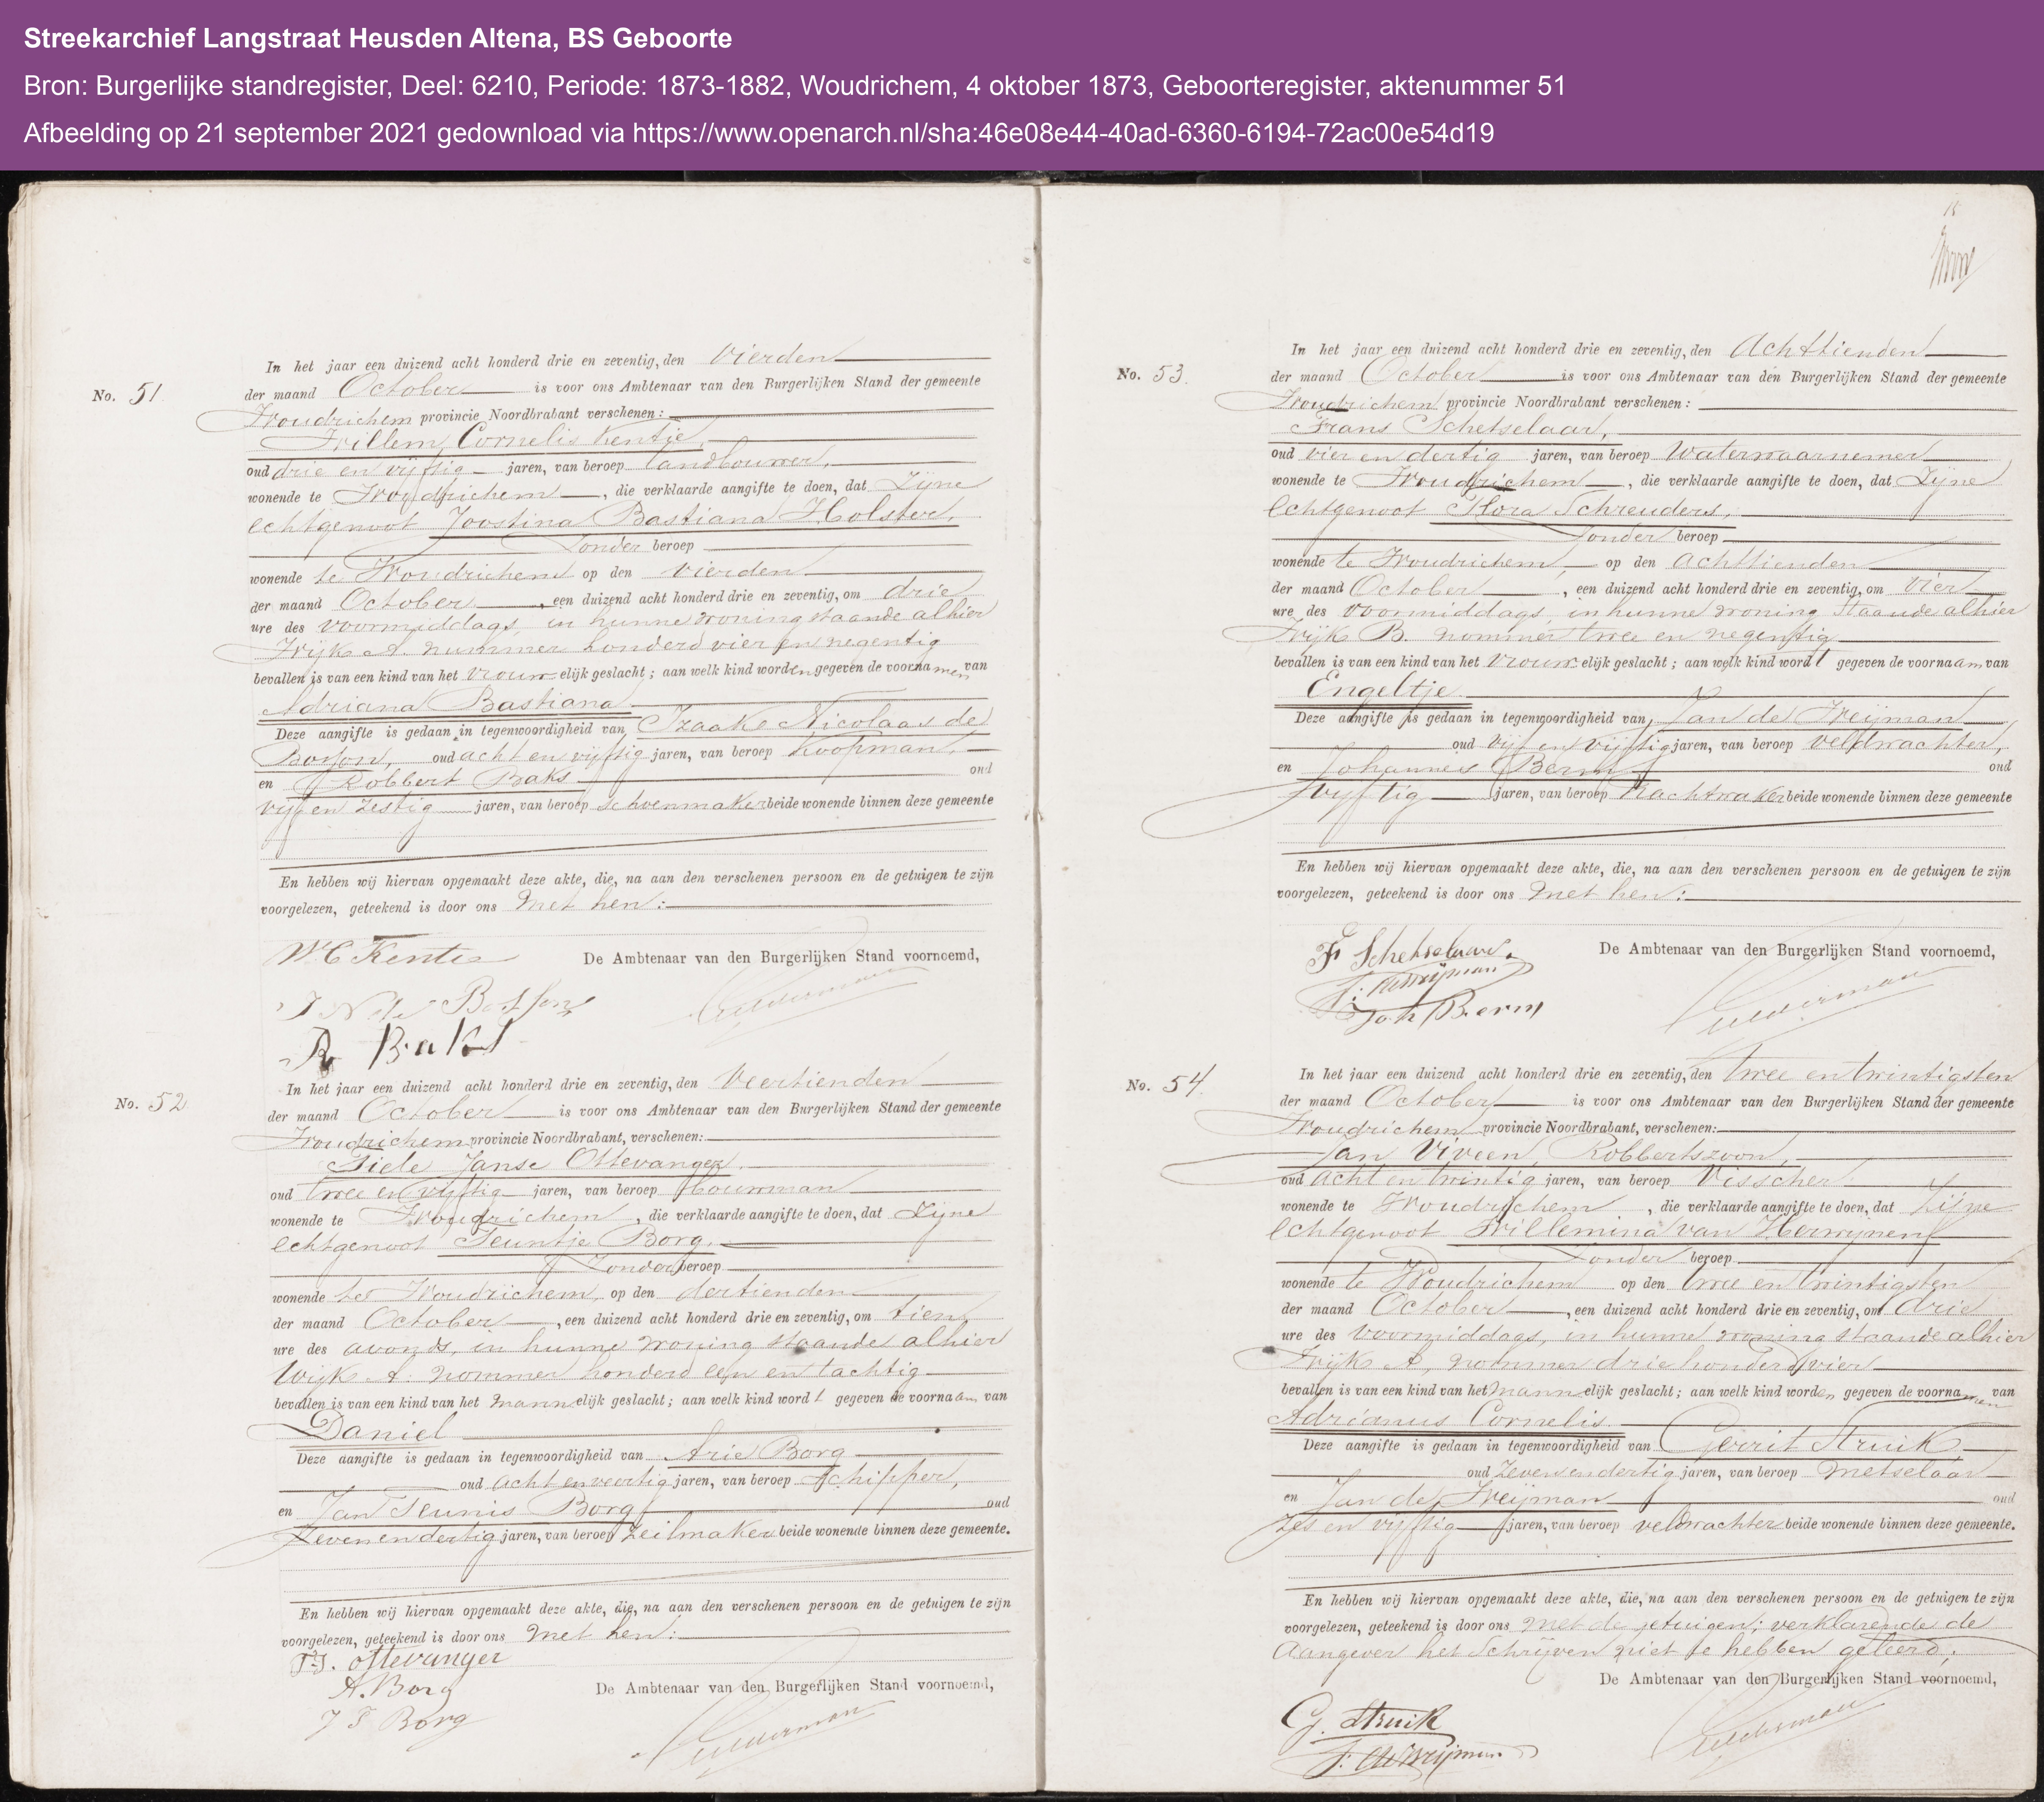 Streekarchief Langstraat Heusden Altena, BS Geboorte
Bron: Burgerlijke standregister, Deel: 6210, Periode: 1873-1882, Woudrichem, 4 oktober 1873, Geboorteregister, aktenummer 51
Afbeelding op 21 september 2021 gedownload via https://www.openarch.nl/sha:46e08e44-40ad-6360-6194-72ac00e54d19
No. 51.
In het jaar een duizend acht honderd drie en zeventig, den Vierden
der maand October is voor ons Ambtenaar van den Burgerlijken Stand der gemeente
Woudrichem provincie Noordbrabant verschenen:
Willem Cornelis Kentje,
oud drie en vijftig jaren, van beroep landbouwer,
wonende te Woudrichem, die verklaarde aangifte te doen, dat Zijne
Echtgenoot Joostina Bastiana Holster,
Zonder beroep
wonende te Woudrichem op den vierden
der maand October, een duizend acht honderd drie en zeventig, om drie
ure des voormiddags, in hunne woning staande alhier
Wijk A. nummer honderd vier en negentig
bevallen is van een kind van het vrouwelijk geslacht; aan welk kind worden gegeven de voornamen van
Adriana Bastiana
Deze aangifte is gedaan in tegenwoordigheid van Izaake Nicolaas de
Bosson, oud acht en vijftig jaren, van beroep Koopman,
en Robbert Baks oud
vijf en zestig jaren, van beroep schoenmaker beide wonende binnen deze gemeente
En hebben wij hiervan opgemaakt deze akte, die, na aan den verschenen persoon en de getuigen te zijn
voorgelezen, geteekend is door ons met hen:
W C Kentie
De Ambtenaar van den Burgerlijken Stand voornoemd,
I N de Bosson
R Baks
No. 52
In het jaar een duizend acht honderd drie en zeventig, den Veertienden
der maand October is voor ons Ambtenaar van den Burgerlijken Stand der gemeente
Woudrichem provincie Noordbrabant, verschenen:
Fiele Janse Ottevanger,
oud twee en vijftig jaren, van beroep Bouwman
wonende te Woudrichem, die verklaarde aangifte te doen, dat Zijne
Echtgenoot Teuntje Borg,
Zonder beroep
wonende te Woudrichem, op den dertienden
der maand October, een duizend acht honderd drie en zeventig, om tien
ure des avonds, in hunne woning staande alhier
Wijk A. nommer honderd een en tachtig
bevallen is van een kind van het mannelijk geslacht; aan welk kind wordt gegeven de voornaam van
Daniel
Deze aangifte is gedaan in tegenwoordigheid van Arie Borg
oud acht en veertig jaren, van beroep Schipper,
en Jan Teunis Borg oud
Zeven en dertig jaren, van beroep Zeilmaker beide wonende binnen deze gemeente.
En hebben wij hiervan opgemaakt deze akte, die, na aan den verschenen persoon en de getuigen te zijn
voorgelezen, geteekend is door ons met hen:
F.J. Ottevanger
A. Borg
De Ambtenaar van den Burgerlijken Stand voornoemd,
J T Borg
No. 53.
In het jaar een duizend acht honderd drie en zeventig, den Achttienden
der maand October is voor ons Ambtenaar van den Burgerlijken Stand der gemeente
Woudrichem provincie Noordbrabant verschenen:
Frans Schetselaar,
oud vier en dertig jaren, van beroep Waterwaarnemer
wonende te Woudrichem, die verklaarde aangifte te doen, dat Zijne
Echtgenoot Flora Schreuders,
Zonder beroep
wonende te Woudrichem, op den achttienden
der maand October, een duizend acht honderd drie en zeventig, om vier
ure des voormiddags, in hunne woning staande alhier
Wijk B. nommer twee en negentig
bevallen is van een kind van het vrouwelijk geslacht; aan welk kind wordt gegeven de voornaam van
Engeltje
Deze aangifte is gedaan in tegenwoordigheid van Jan de Weijman
oud vijf en vijftig jaren, van beroep veldwachter,
en Johannes Berm oud
vijftig jaren, van beroep Nachtwaker beide wonende binnen deze gemeente
En hebben wij hiervan opgemaakt deze akte, die, na aan den verschenen persoon en de getuigen te zijn
voorgelezen, geteekend is door ons met hen:
F Schetselaar.
De Ambtenaar van den Burgerlijken Stand voornoemd,
J: de Weijman
Joh Berm
No. 54.
In het jaar een duizend acht honderd drie en zeventig, den twee en twintigsten
der maand October is voor ons Ambtenaar van den Burgerlijken Stand der gemeente
Woudrichem provincie Noordbrabant, verschenen:
Jan Viveen, Robbertszoon,
oud acht en twintig jaren, van beroep Visscher
wonende te Woudrichem, die verklaarde aangifte te doen, dat Zijne
Echtgenoot Willemina van Herwijnen
Zonder beroep
wonende te Woudrichem op den twee en twintigsten
der maand October, een duizend acht honderd drie en zeventig, om drie
ure des voormiddags, in hunne woning staande alhier
Wijk A, nommer drie honderd vier
bevallen is van een kind van het mannelijk geslacht; aan welk kind worden gegeven de voornamen van
Adrianus Cornelis
Deze aangifte is gedaan in tegenwoordigheid van Gerrit Struik
oud Zeven en dertig jaren, van beroep metselaar
en Jan de Weijman oud
Zes en vijftig jaren, van beroep veldwachter beide wonende binnen deze gemeente.
En hebben wij hiervan opgemaakt deze akte, die, na aan den verschenen persoon en de getuigen te zijn
voorgelezen, geteekend is door ons met de getuigen; verklarende de
Aangever het Schrijven niet te hebben geleerd,
De Ambtenaar van den Burgerlijken Stand voornoemd,
G. Struik
J. de Weijman